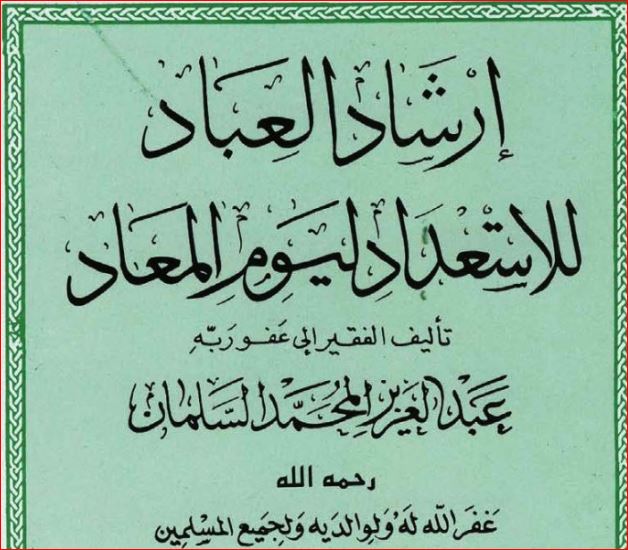 إرشاد العباد
للاستعداد ليوم المعاد
تأليف الفقير إلى عفو ربه
عبد العزيز المحمد السلمان
رحمه الله
غفر الله له ولوالديه ولجميع المسلمين